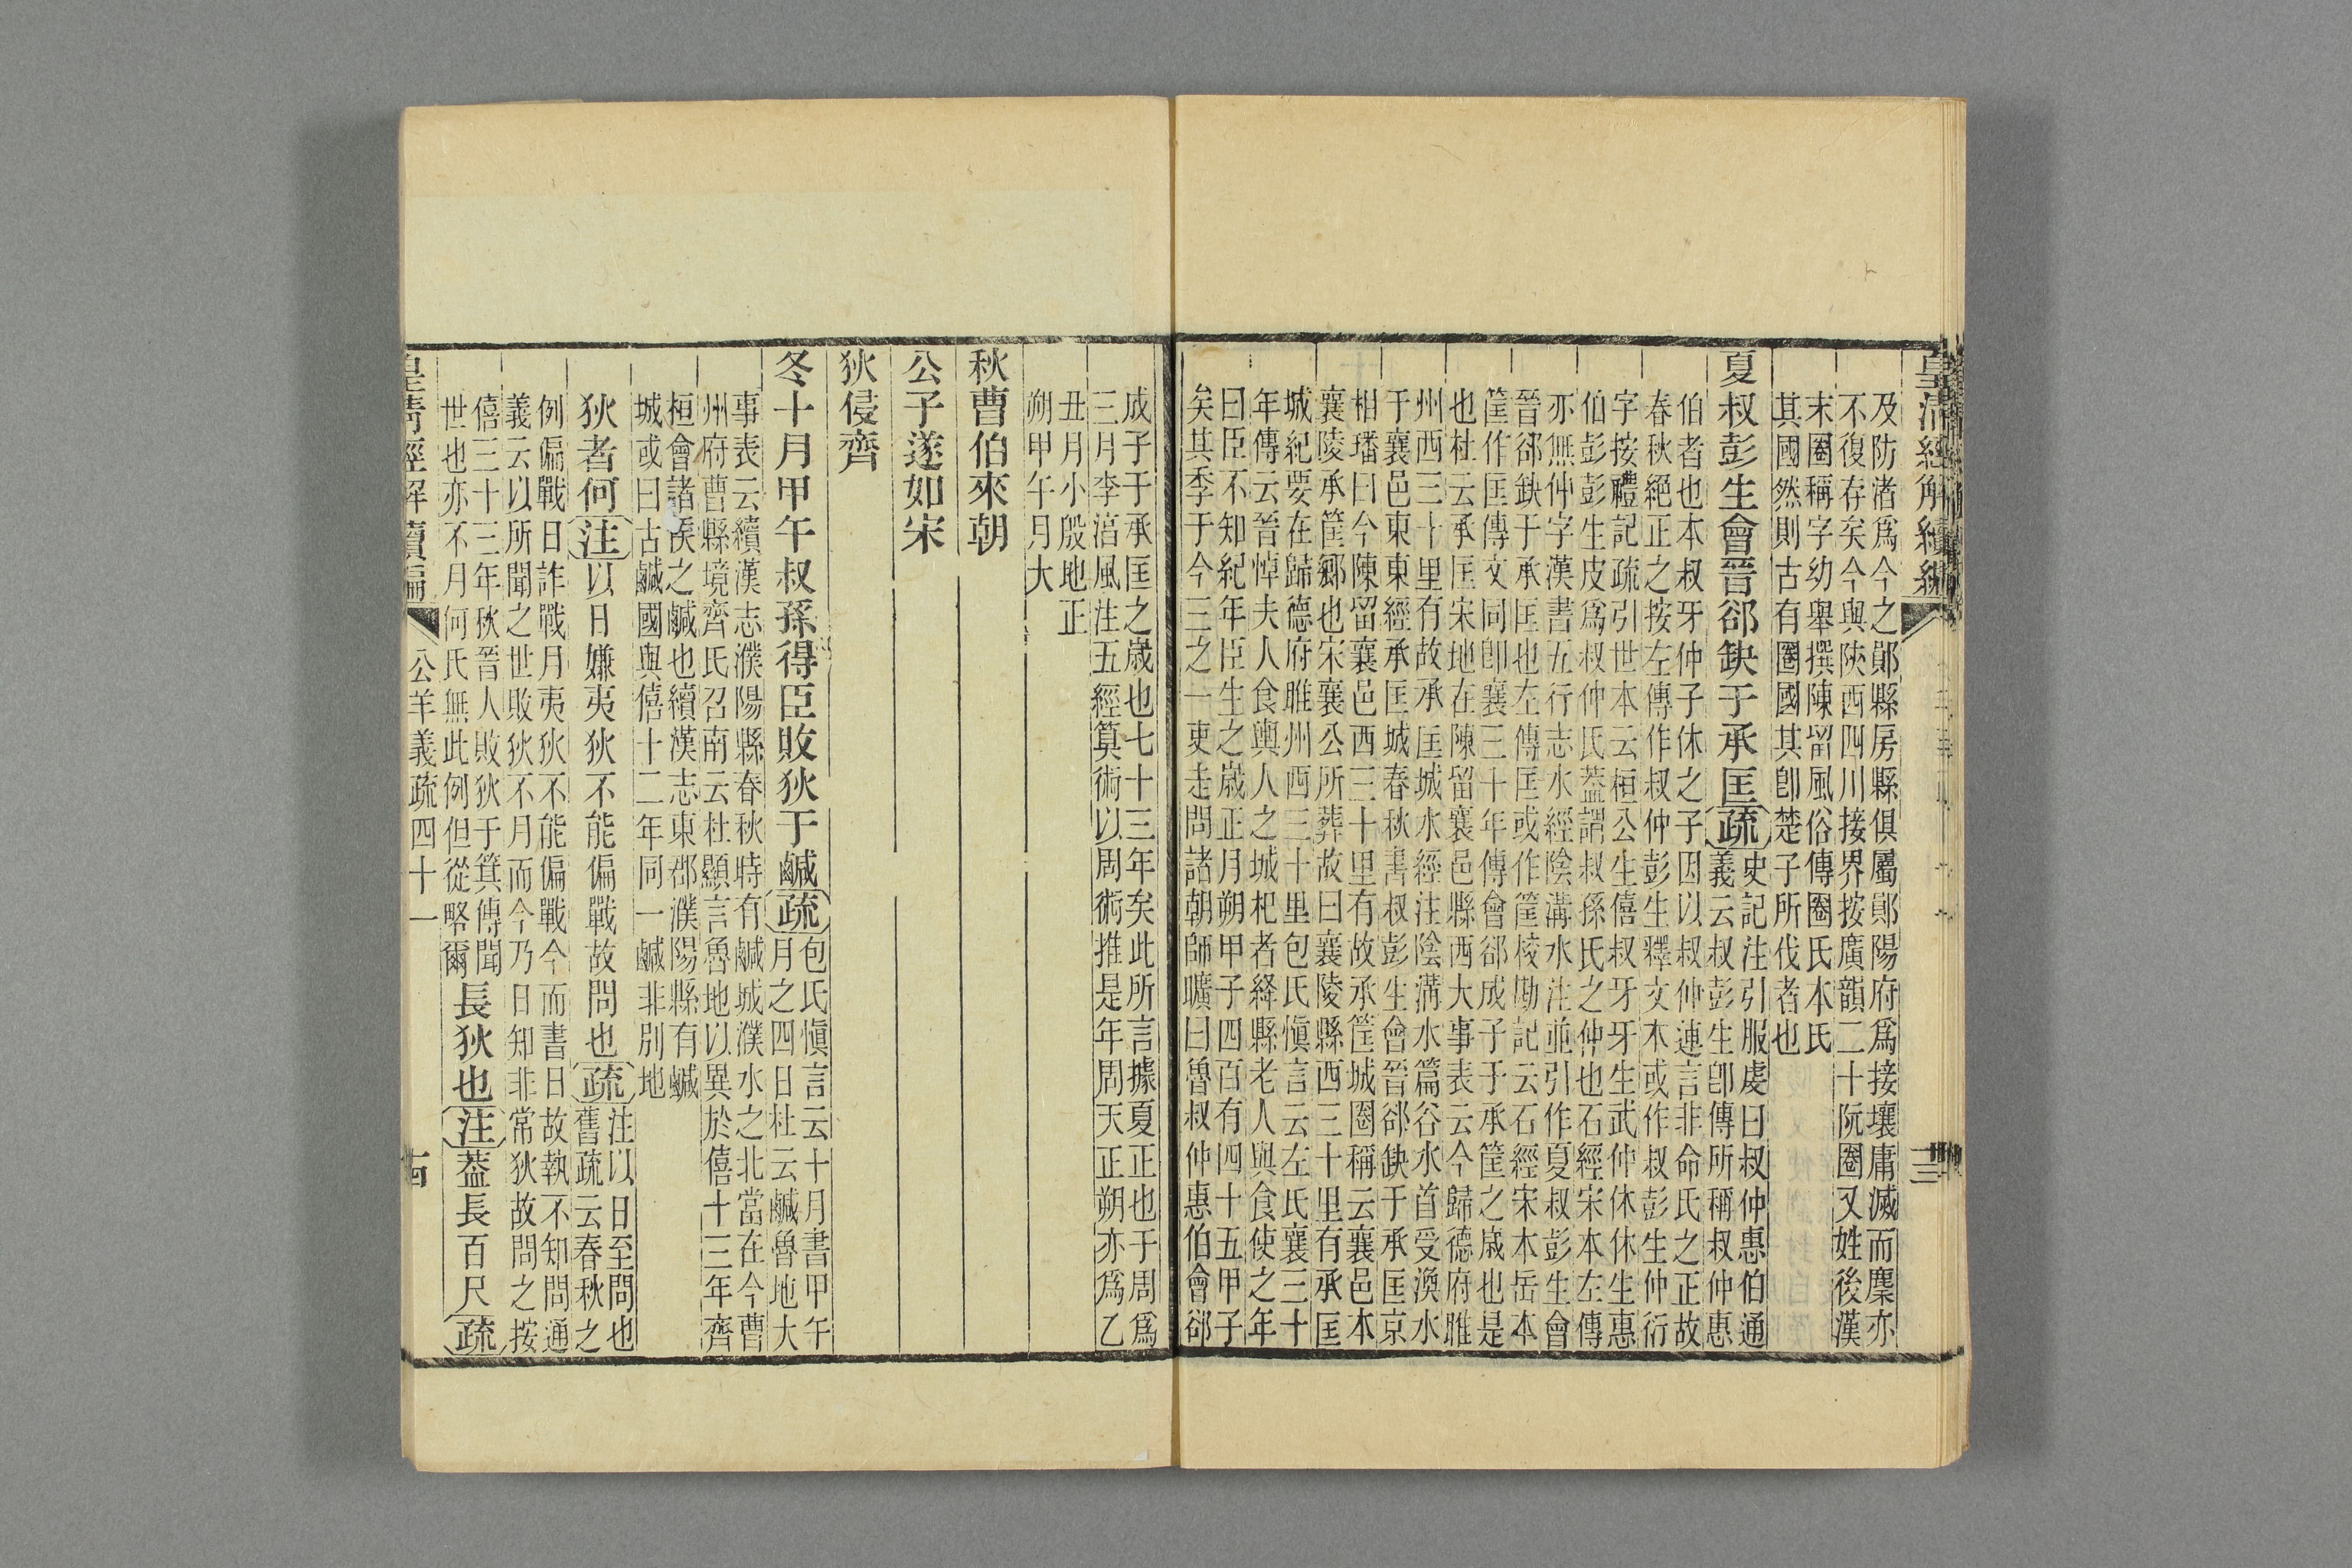 皇清經解續編
及防渚爲今之鄖縣房縣俱屬鄖陽府爲接壤庸滅而麇亦
不復存矣今與陝西四川接界按廣韻二十阮圈又姓後漢
末圈稱字幼舉撰陳留風俗傳圈氏本氏
其國然則古有圈國其卽楚子所伐者也
夏叔彭生會晉郤缺于承匡疏史記注引服虔曰叔仲惠伯通
義云叔彭生卽傳所稱叔仲惠
伯者也本叔牙仲子休之子因以叔仲連言非命氏之正故
春秋絕正之按左傳作叔仲彭生釋文本或作叔彭生仲衍
字按禮記疏引世本云桓公生僖叔牙牙生武仲休休生惠
伯彭彭生皮爲叔仲氏蓋謂叔孫氏之仲也石經宋本左傳
亦無仲字漢書五行志水經陰溝水注並引作夏叔彭生會
晉郤缺于承匡也左傳匡或作筐校勘記云石經宋本岳本
筐作匡傳文同卽襄三十年傳會郤成子于承筐之歲也是
也杜云承匡宋地在陳留襄邑縣西大事表云今歸德府睢
州西三十里有故承匡城水經注陰溝水篇谷水首受渙水
于襄邑東東經承匡城春秋書叔彭生會晉郤缺于承匡京
相璠曰今陳留襄邑西三十里有故承筐城圈稱云襄邑本
襄陵承筐鄉也宋襄公所葬故曰襄陵縣西三十里有承匡
城紀要在歸德府睢州西三十里包氏愼言云左氏襄三十
年傳云晉悼夫人食輿人之城杞者絳縣老人與食使之年
曰臣不知紀年臣生之歲正月朔甲子四百有四十五甲子
矣其季于今三之一吏走問諸朝師曠曰魯叔仲惠伯會郤
成子于承匡之歲也七十三年矣此所言據夏正也于周爲
三月李淳風注五經算術以周術推是年周天正朔亦爲乙
丑月小殷地正
朔甲午月大
秋曹伯來朝
公子遂如宋
狄侵齊
冬十月甲午叔孫得臣敗狄于鹹疏包氏愼言云十月書甲午
月之四日杜云鹹魯地大
事表云續漢志濮陽縣春秋時有鹹城濮水之北當在今曹
州府曹縣境齊氏召南云杜顯言魯地以異於僖十三年齊
桓會諸侯之鹹也續漢志東郡濮陽縣有鹹
城或曰古鹹國與僖十二年同一鹹非別地
狄者何注以日嫌夷狄不能偏戰故問也疏注以日至問也
舊疏云春秋之
例偏戰日詐戰月夷狄不能偏戰今而書日故執不知問通
義云以所聞之世敗狄不月而今乃日知非常狄故問之按
僖三十三年秋晉人敗狄于箕傳聞
世也亦不月何氏無此例但從略爾長狄也注蓋長百尺疏
皇清經解續編 公羊義疏四十一 十四